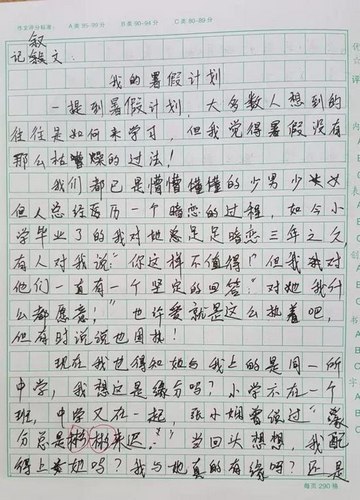 作文评分标准： A类 95-99分 B类 90-94分 C类 80-89分
叙
记叙文：
我的暑假计划
一提到暑假计划，大多数人想到的
往往是如何来学习，但我觉得暑假没有
那么枯燥的过法！
我们都已是懵懵懂懂的少男少女
但人总经历一个暗恋的过程，如今小
学毕业了的我对她总是足足暗恋三年之久，
有人对我说“你这样不值得！”但我对
他们一直有一个坚定的回答“对她我什
么都愿意！”也许爱就是这么执着吧，
但有时说说也困热！
现在我也得知她与我上的是同一所
中学，我想这是缘分吗？小学不在一个
班，中学又在一起，张小娴曾说过“缘
分总是彬彬来迟。”当回头想想，我配
得上她吗？我与她真的有缘吗？还是
每页290格